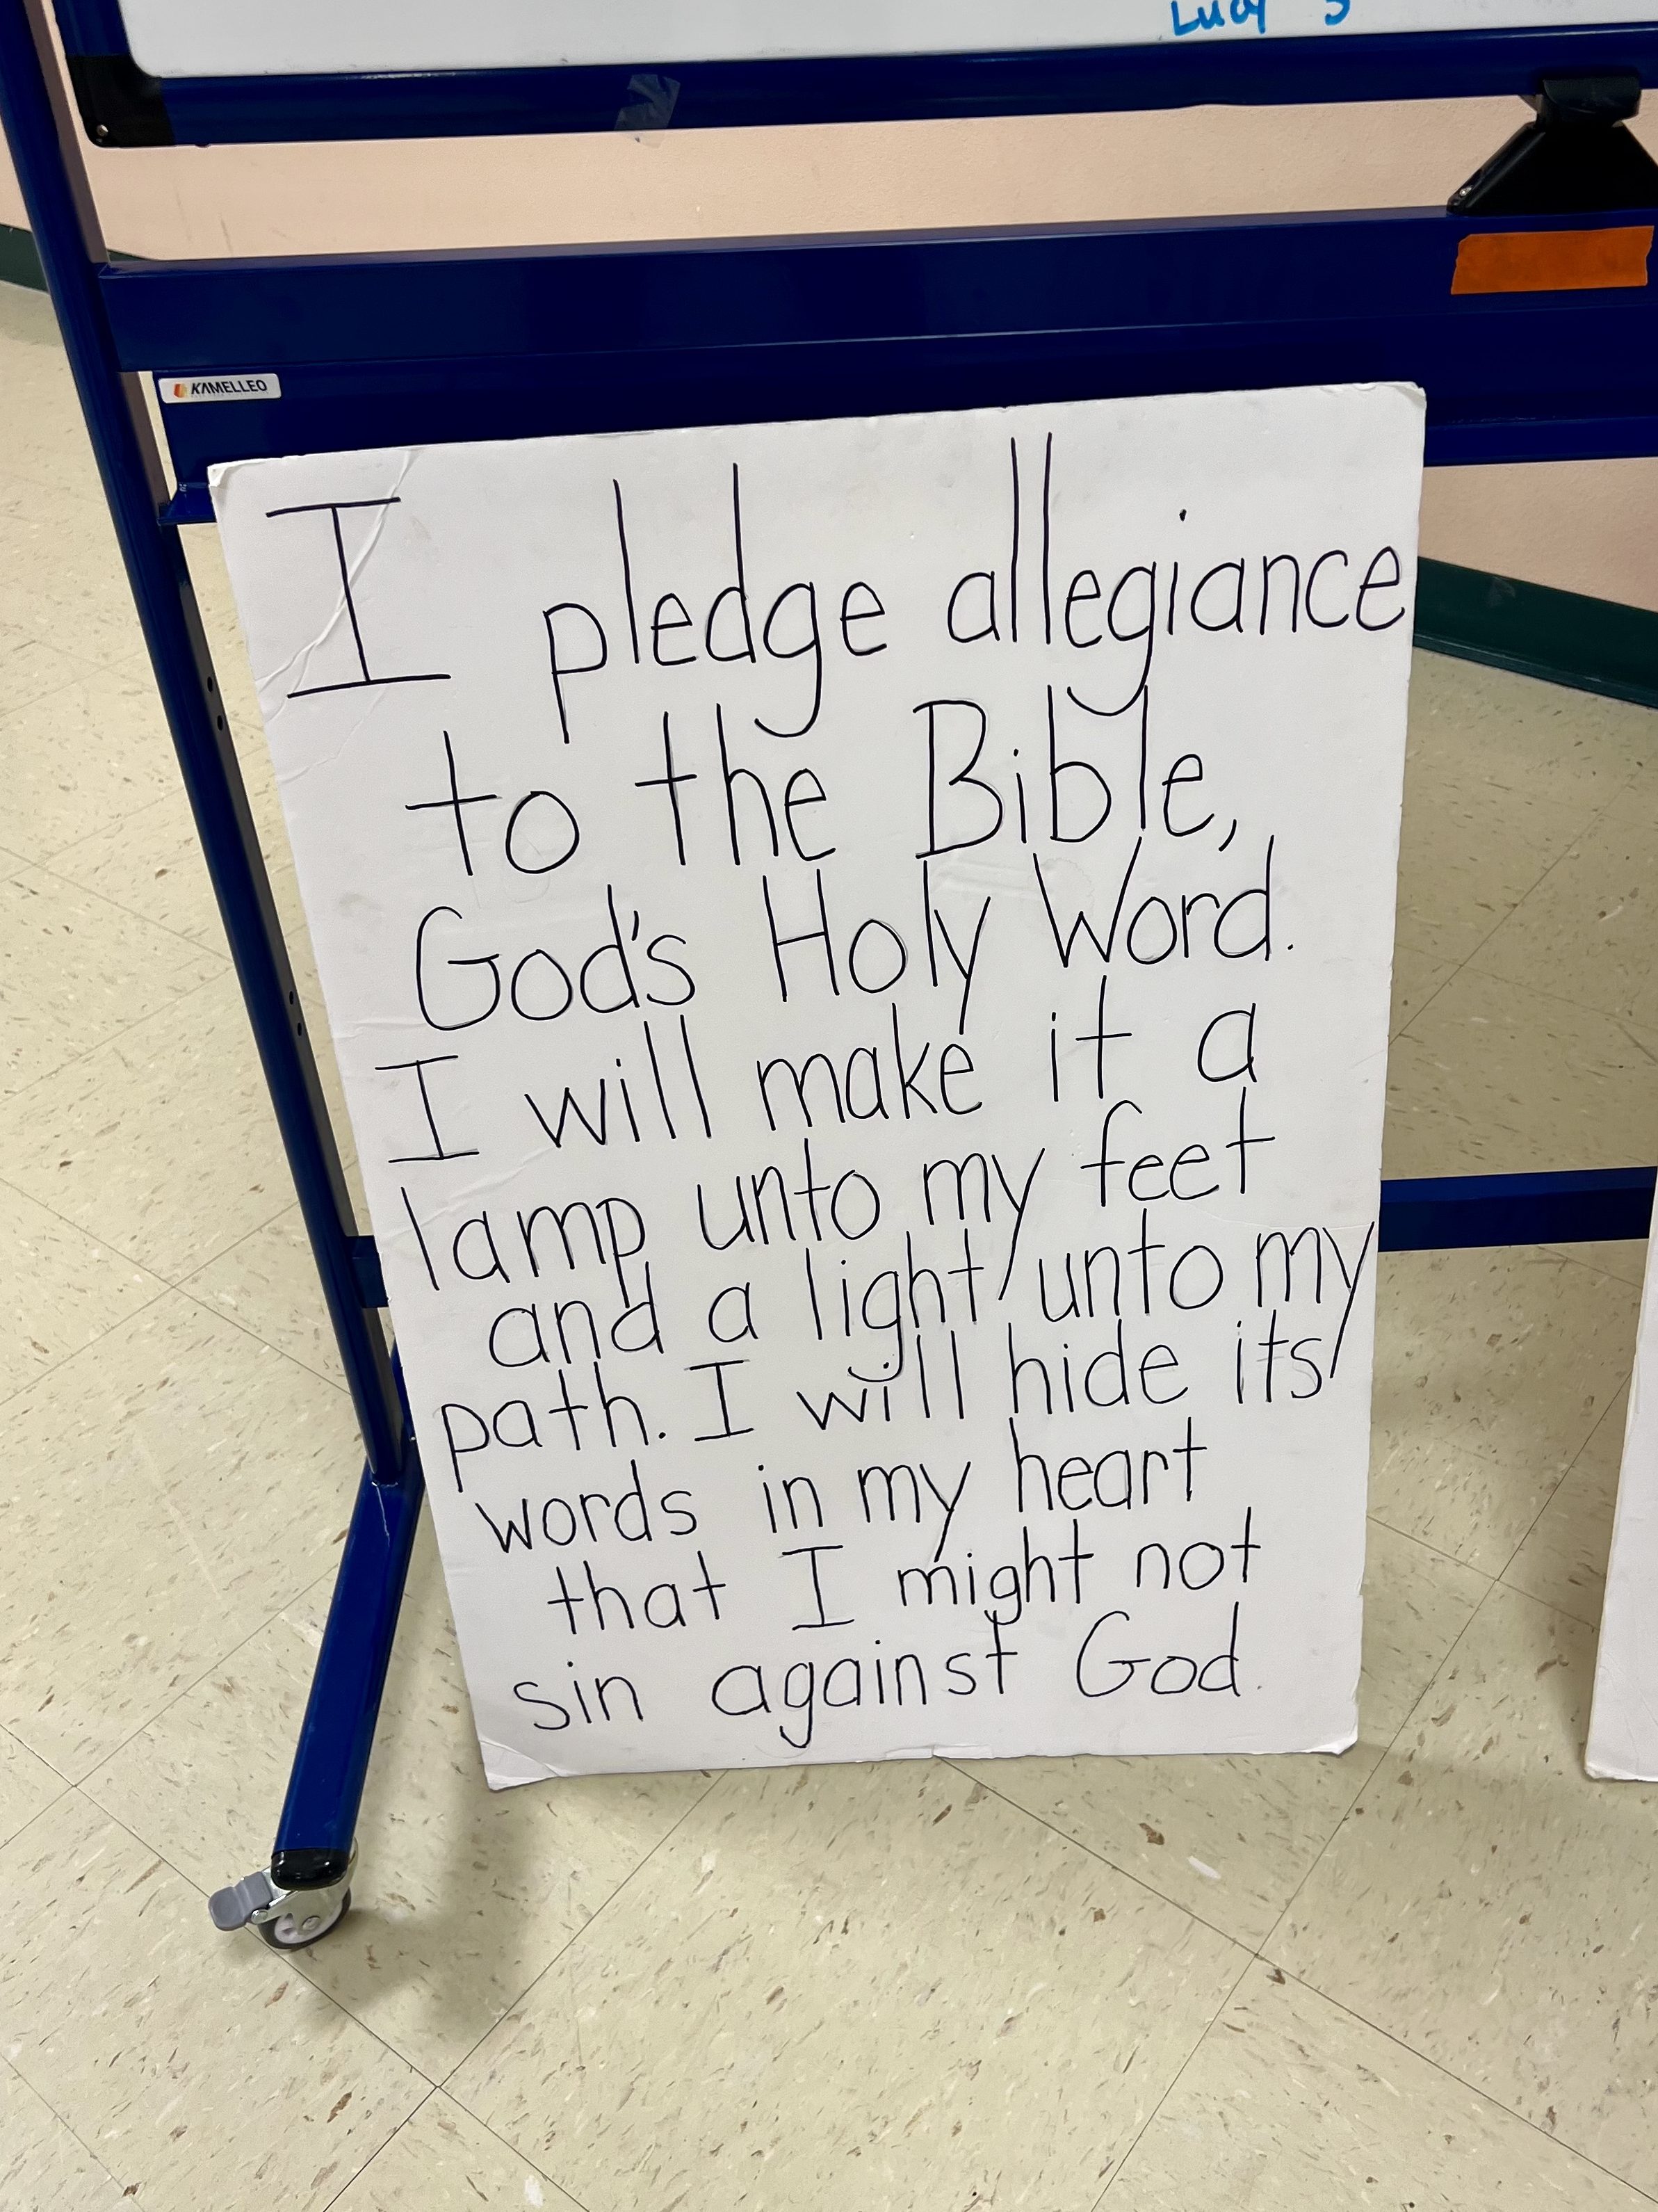 Lucy S
KAMELLEO
I pledge allegiance
to the Bible,
God's Holy Word.
I will make it a
lamp unto my feet
and a light unto my
path. I will hide its
words in my heart
that I might not
sin against God.